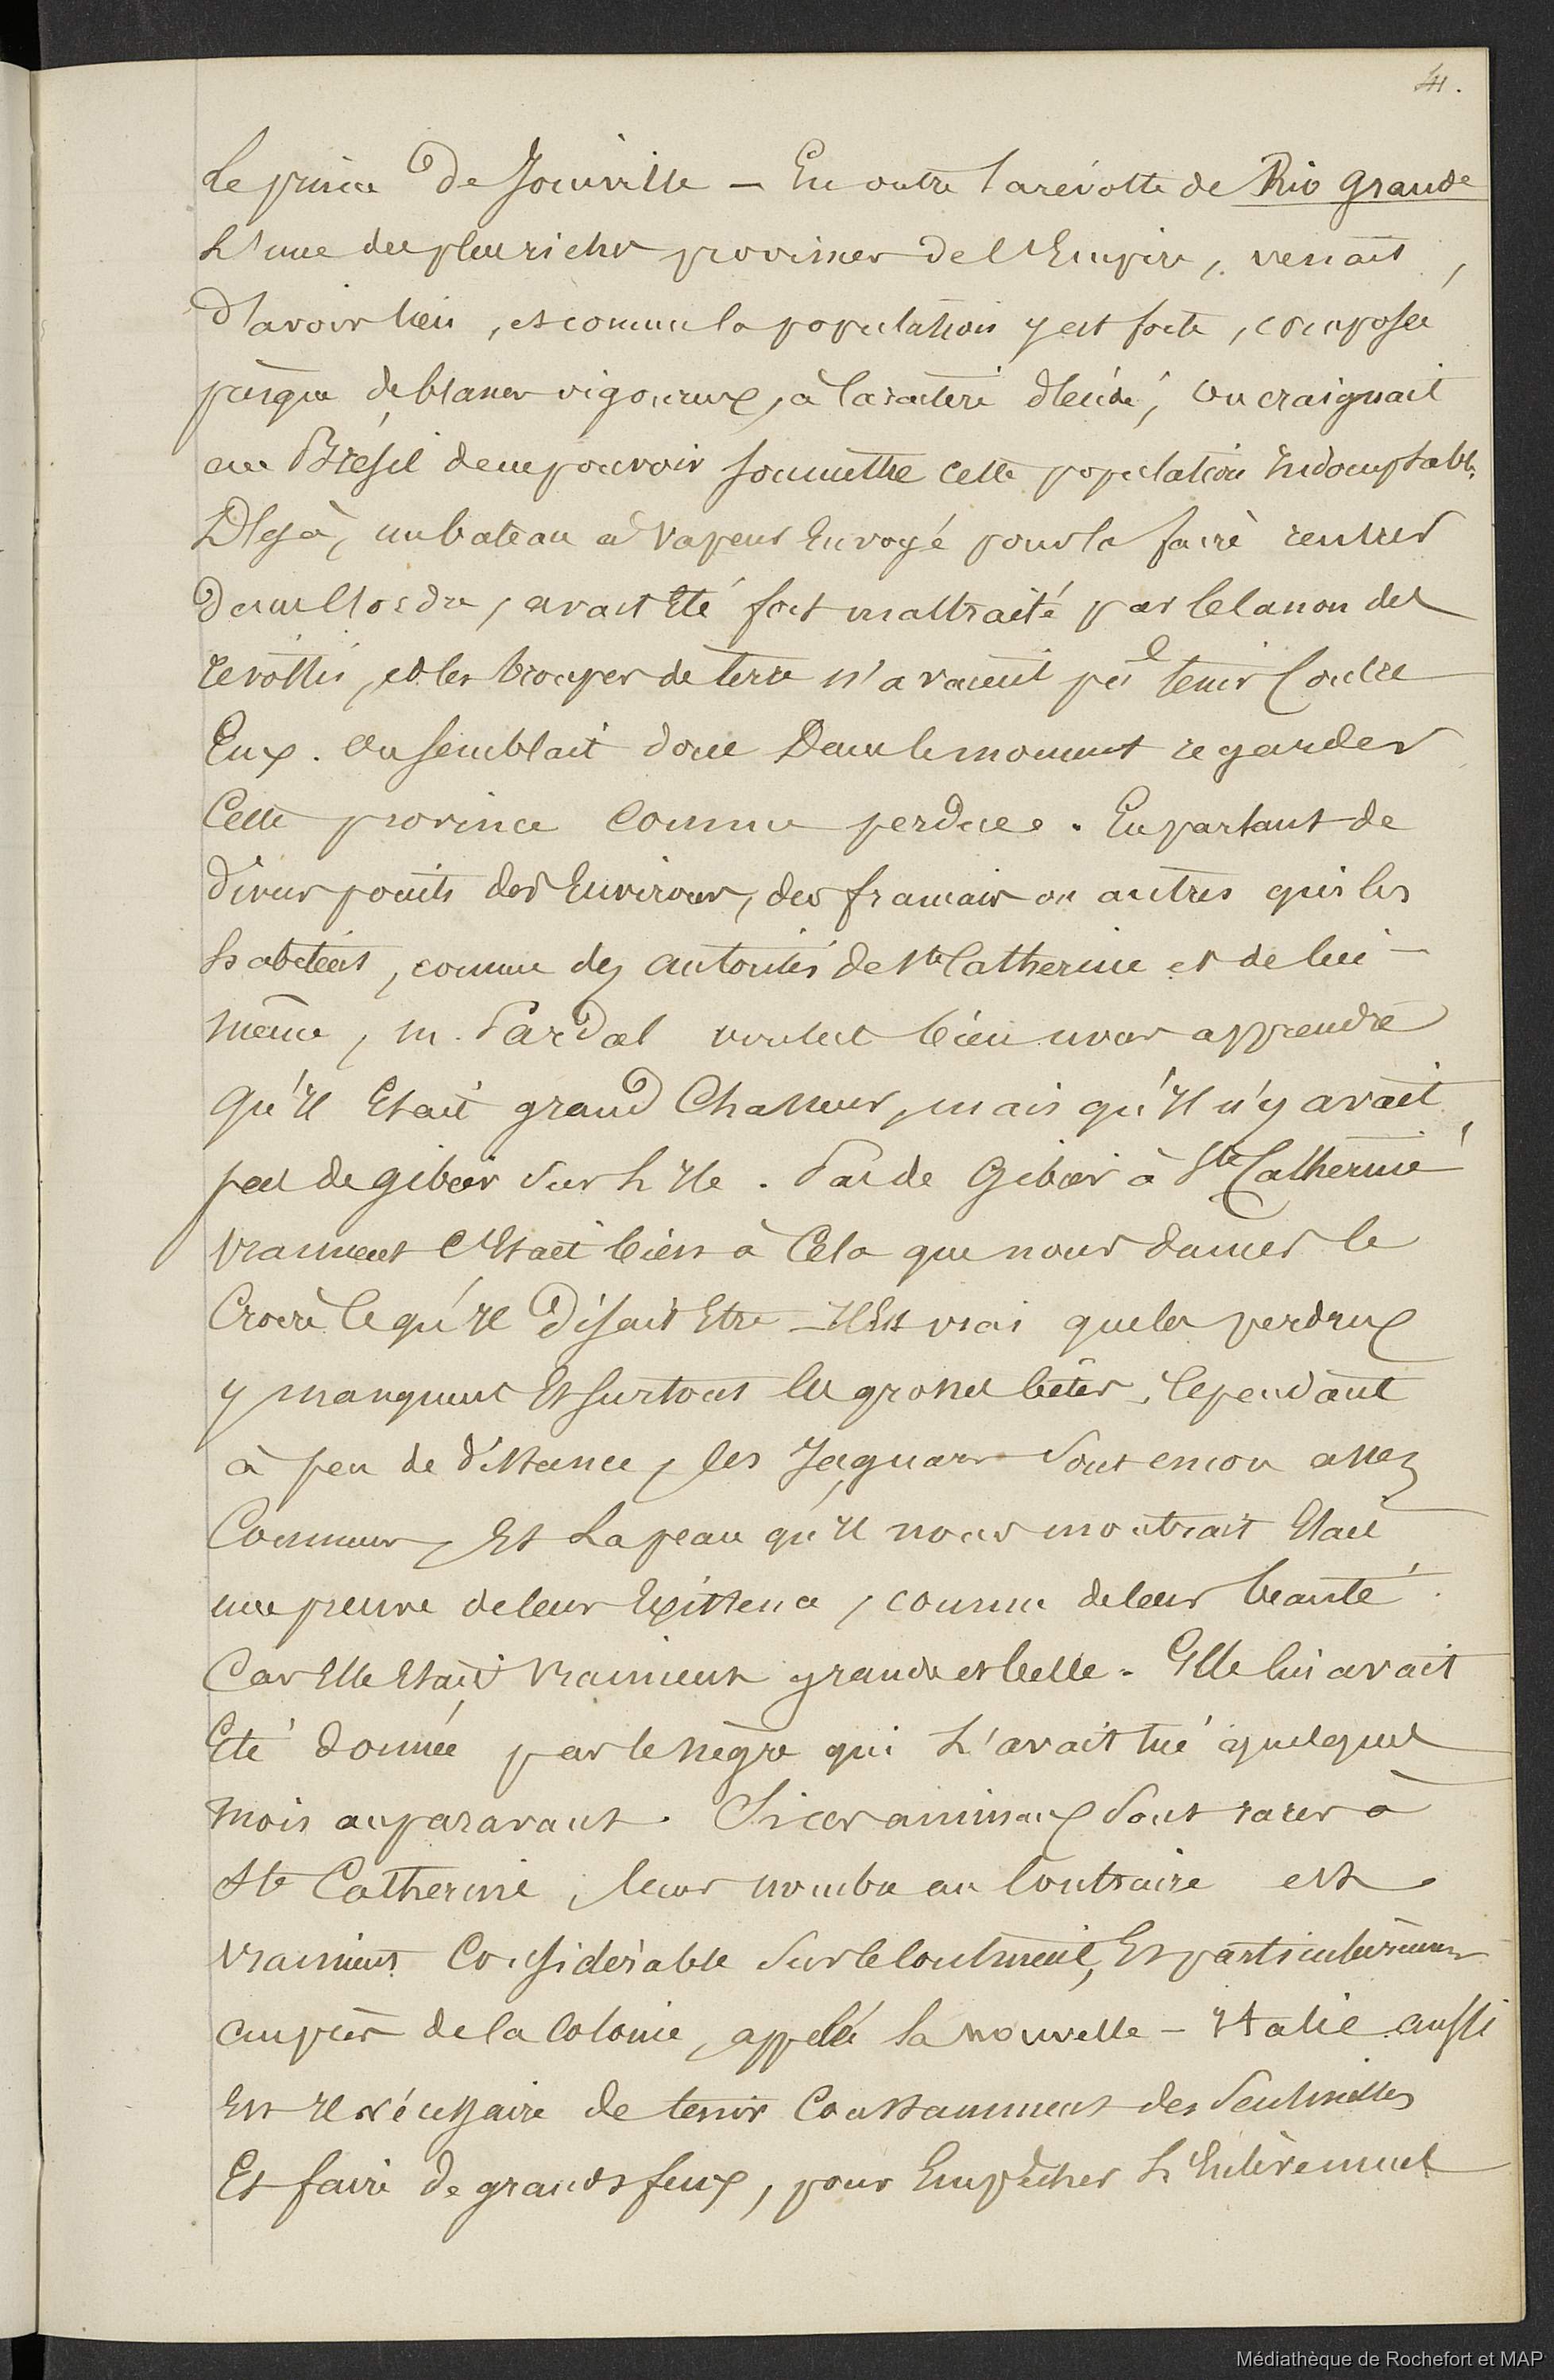 41.
Le prince de Joinville – En outre la révolte de Rio Grande
L'une des plus riches provinces de l'Empire, venait
d'avoir lieu, et comme la population y est forte, composée
presque de blancs vigoureux, à caractère décidé, on craignait
au Brésil de ne pouvoir soumettre cette population indomptable.
Déjà, un bateau à vapeur Envoyé pour la faire rentrer
dans l'ordre, avait Eté fort maltraité par le Canon des
révoltés, et les troupes de terre n'avaient pu tenir Contre
Eux. On semblait donc Dans le moment regarder
Cette province Comme perdue. En parlant de
divers points des Environs, des français ou autres qui les
habitent, comme des autorités de Ste Catherine et de lui-
même, M. Pardal voulut bien nous apprendre
qu'Il Etait grand Chasseur, mais qu'Il n'y avait
peu de gibier sur L'Ile. Pas de Gibier à Ste Catherine
vraiment c'Etait bien à Cela que nous dumes le
Croire Ce qu'Il Disait Etre – Il Est vrai que les perdrix
y manquent Et surtout les grosses bêtes. Cependant
à peu de distance, les Jaguars sont encore assez
Communs, Et La peau qu'Il nous montrait Etait
une preuve de leur Existence, comme de leur beauté.
Car Elle Etait Vraiment grande et belle. Elle lui avait
Eté donnée par le nègre qui L'avait tué quelques
mois auparavant. Si ces animaux sont rares à
Ste Catherine, leur nombre au Contraire est
vraiment Considérable sur le Continent, Et particulièrement
auprès de la Colonie, appelée la nouvelle – Italie aussi
Est Il nécessaire de tenir Constamment des sentinelles
Et faire de grands feux, pour Empêcher L'Enlèvement
Médiathèque de Rochefort et MAP